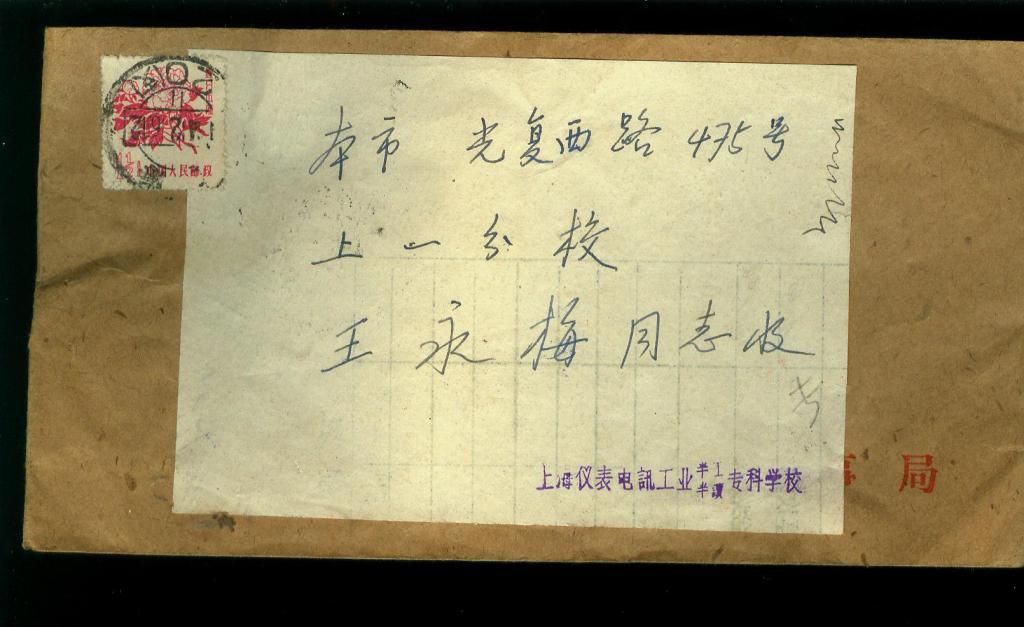 本市 光复西路 475号
上一分校
王永梅同志收
上海仪表电訊工业半工半讀专科学校
局
中国人民邮政